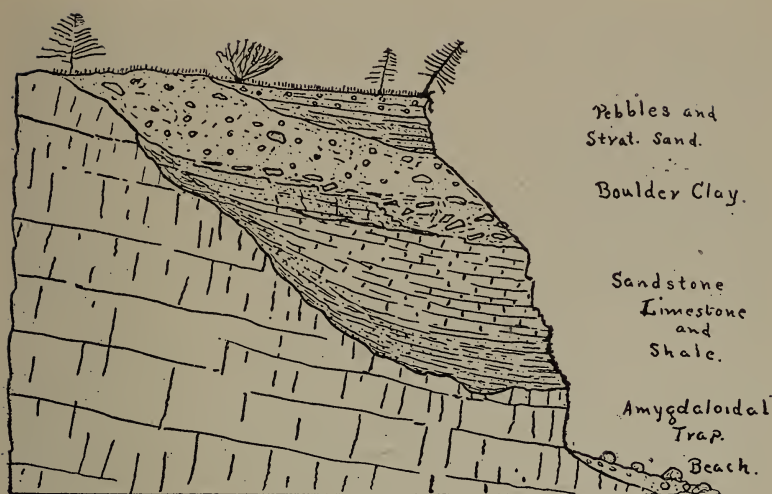 Pebbles and
Strat. Sand.
Boulder Clay.
Sandstone
Limestone
and
Shale.
Amygdaloidal
Trap.
Beach.